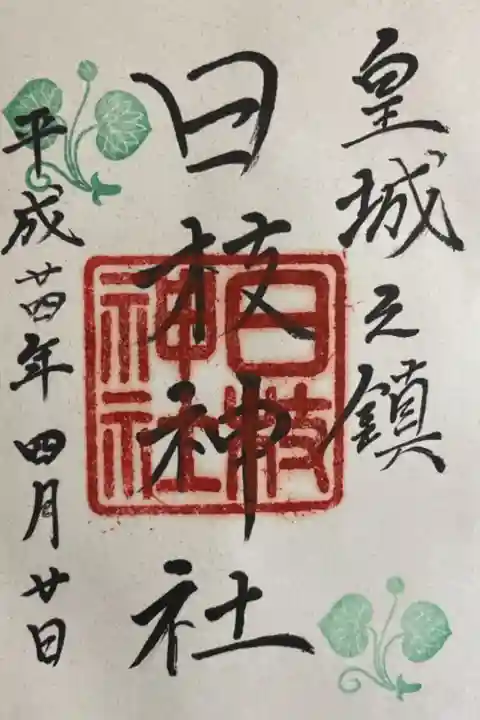 皇城之鎮
日枝神社
日枝神社
平成廿四年四月廿日